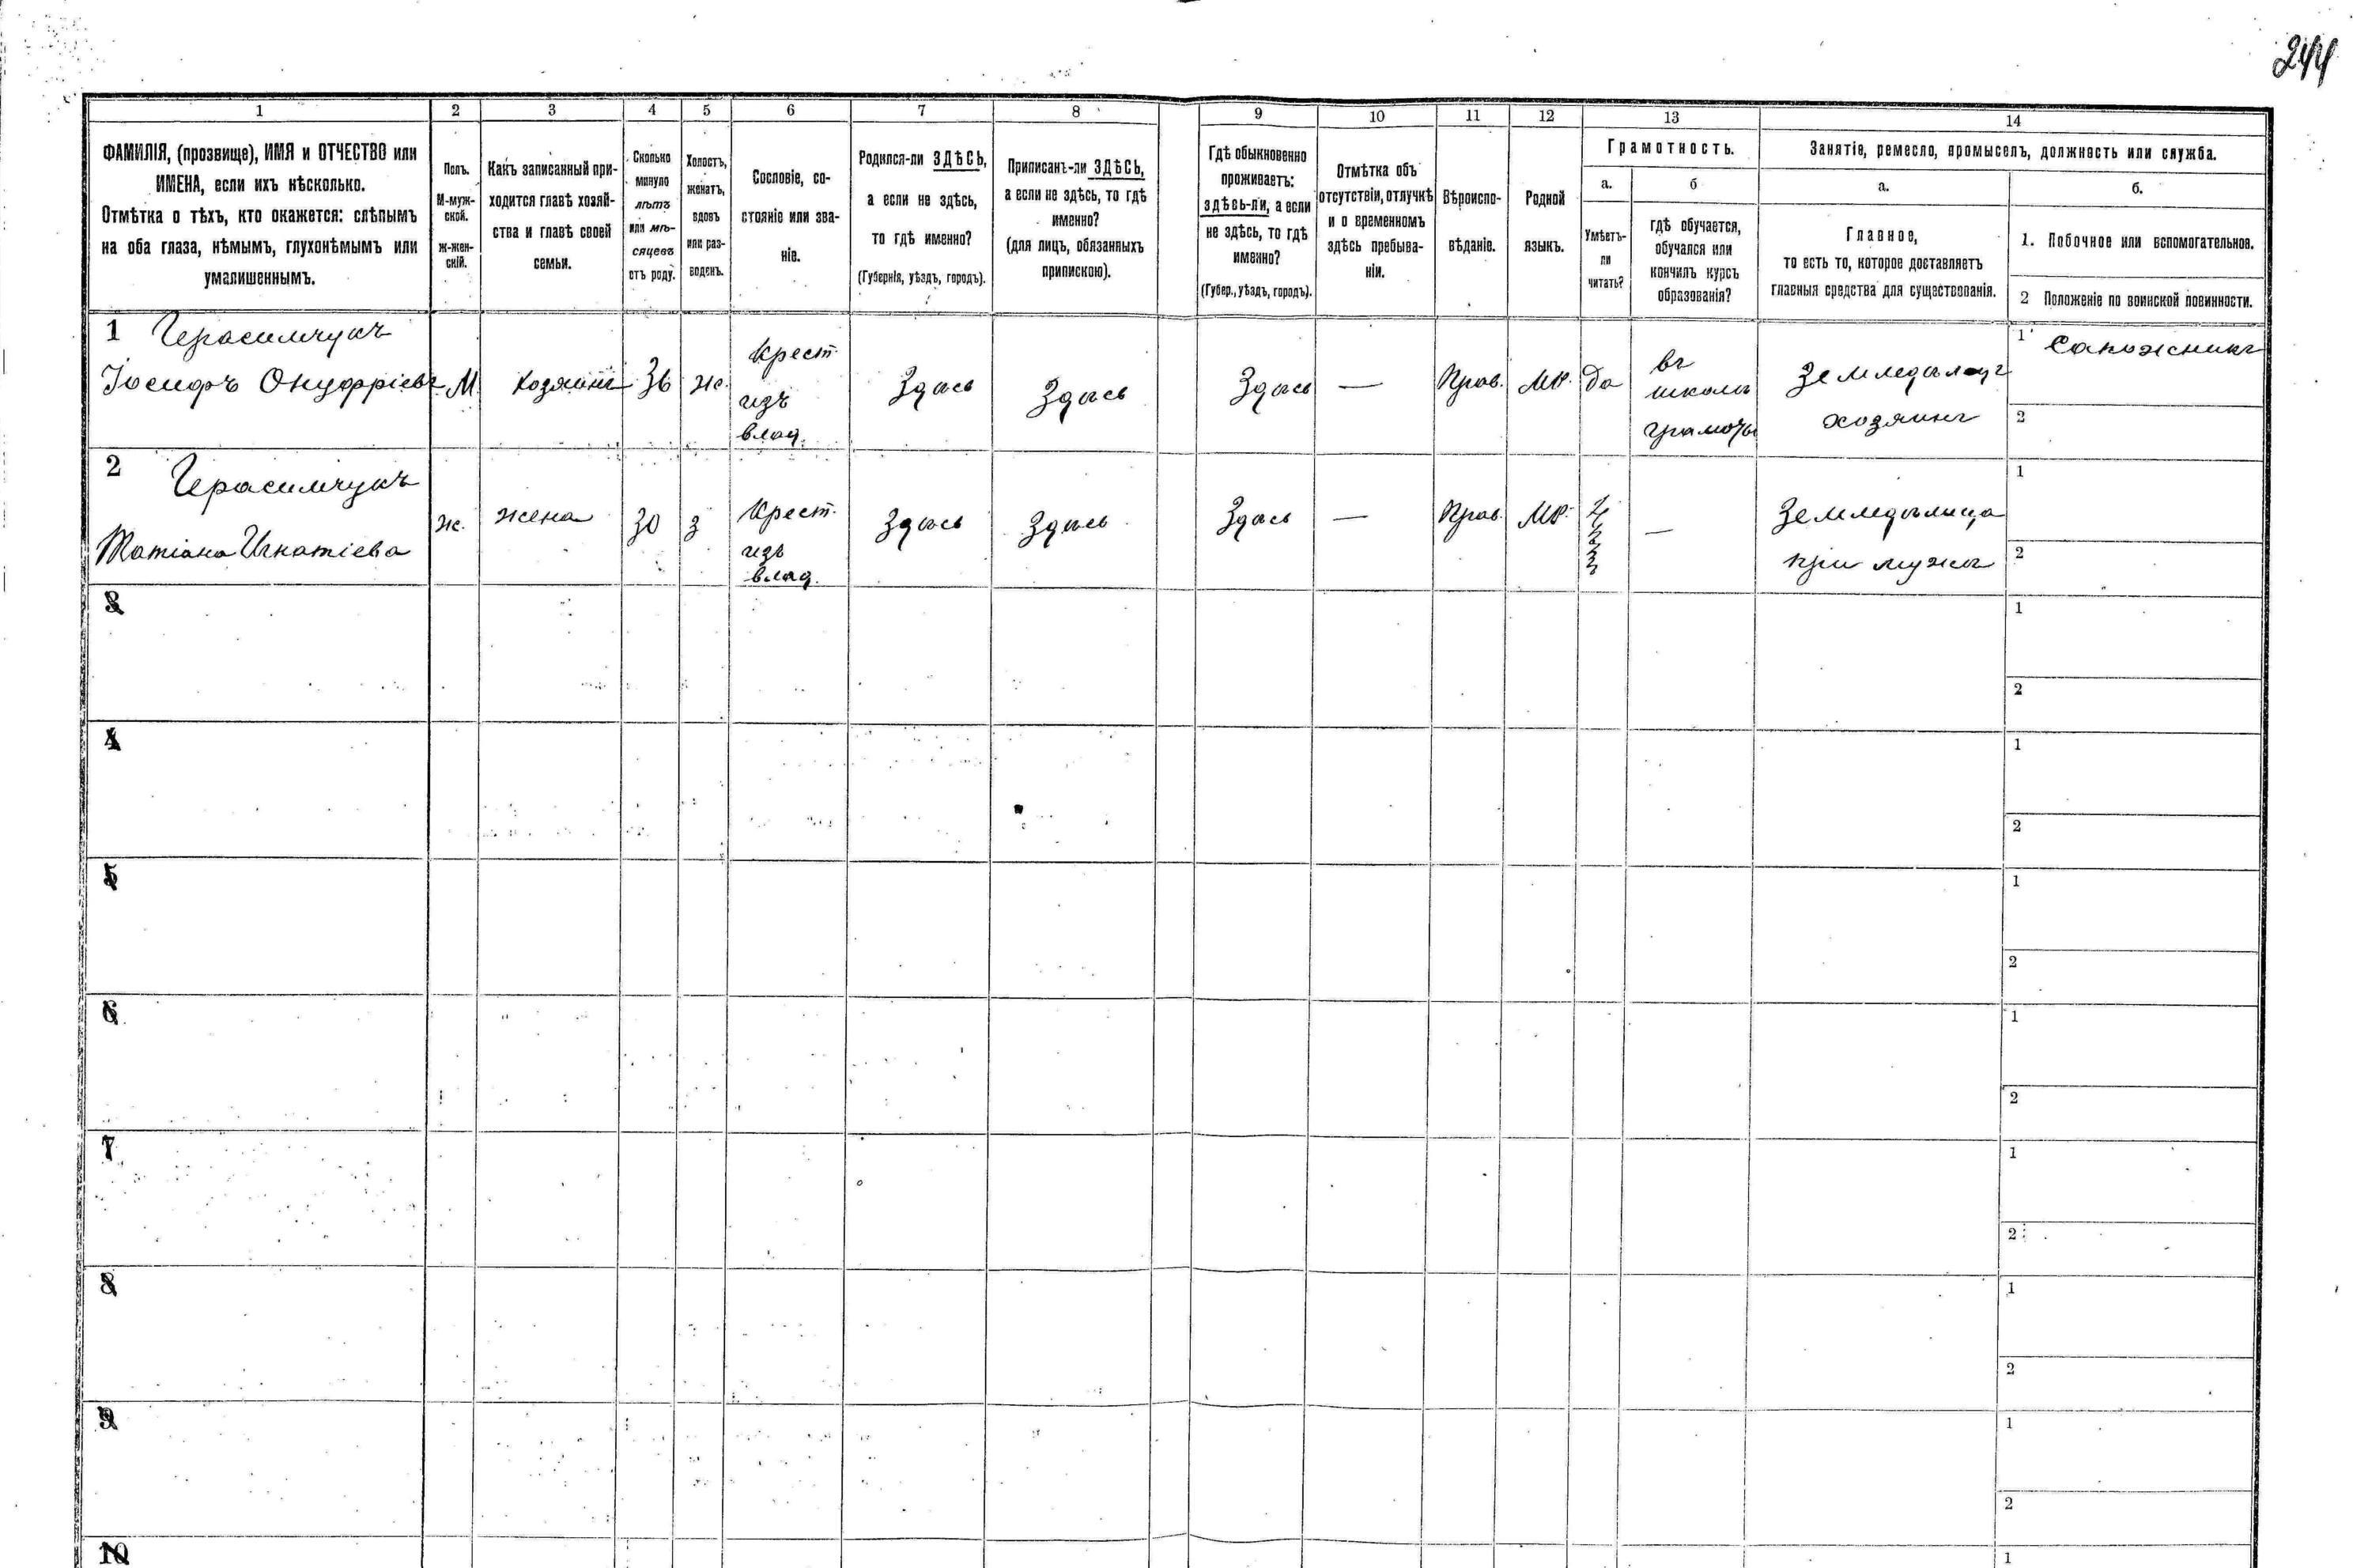 244
1 2 3 4 5 6 7 8 9 10 11 12 13 14
ФАМИЛІЯ, (прозвище), ИМЯ и ОТЧЕСТВО или
ИМЕНА, если ихъ нѣсколько.
Отмѣтка о тѣхъ, кто окажется: слѣпымъ
на оба глаза, нѣмымъ, глухонѣмымъ или
умалишеннымъ.
Полъ.
М-муж-
ской.
ж-жен-
скій.
Какъ записанный при-
ходится главѣ хозяй-
ства и главѣ своей
семьи.
Сколько
минуло
лѣтъ
или мѣ-
сяцевъ
отъ роду.
Холостъ,
женатъ,
вдовъ
или раз-
веденъ.
Сословіе, со-
стояніе или зва-
ніе.
Родился-ли ЗДѢСЬ,
а если не здѣсь,
то гдѣ именно?
(Губернія, уѣздъ, городъ).
Приписанъ-ли ЗДѢСЬ,
а если не здѣсь, то гдѣ
именно?
(для лицъ, обязанныхъ
припискою).
Гдѣ обыкновенно
проживаетъ:
здѣсь-ли, а если
не здѣсь, то гдѣ
именно?
(Губер., уѣздъ, городъ).
Отмѣтка объ
отсутствіи, отлучкѣ
и о временномъ
здѣсь пребыва-
ніи.
Вѣроиспо-
вѣданіе.
Родной
языкъ.
Грамотность.
а.
Умѣетъ-
ли
читать?
б
гдѣ обучается,
обучался или
кончилъ курсъ
образованія?
Занятіе, ремесло, промыселъ, должность или служба.
а.
Главное,
то есть то, которое доставляетъ
главныя средства для существованія.
б.
1. Побочное или вспомогательное.
2 Положеніе по воинской повинности.
1 Герасимчукъ
Іосифъ Онуфріевъ
М.
хозяинъ
36
ж.
Крест.
изъ
влад.
Здѣсь
Здѣсь
Здѣсь
—
Прав.
МР.
да
въ
школѣ
грамоты
Земледѣлецъ
хозяинъ
1 Сапожникъ
2
2 Герасимчукъ
Татіана Игнатіева
ж.
жена
30
З
Крест.
изъ
влад.
Здѣсь
Здѣсь
Здѣсь
—
Прав.
МР.
—
Земледѣлица
при мужѣ
1
2
3
1
2
4
1
2
5
1
2
6
1
2
7
1
2
8
1
2
9
1
2
10
1